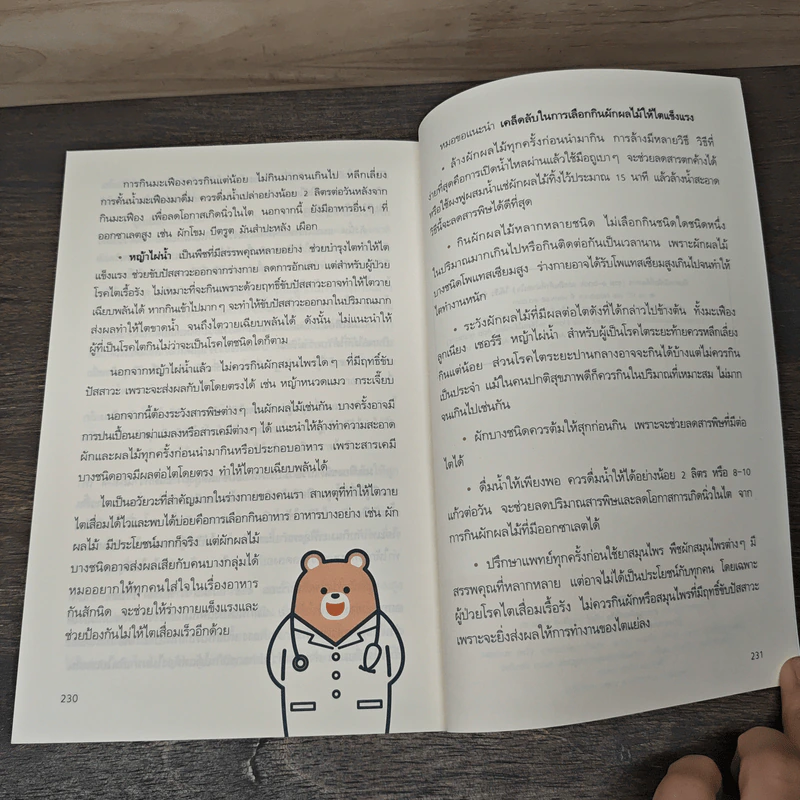 การกินมะเฟืองควรกินแต่น้อย ไม่กินมากจนเกินไป หลีกเลี่ยง
การคั้นน้ำมะเฟืองมาดื่ม ควรดื่มน้ำเปล่าอย่างน้อย 2 ลิตรต่อวันหลังจาก
กินมะเฟือง เพื่อลดโอกาสเกิดนิ่วในไต นอกจากนี้ ยังมีอาหารอื่นๆ ที่
ออกซาเลตสูง เช่น ผักโขม บีตรูต มันสำปะหลัง เผือก
• หญ้าไผ่น้ำ เป็นพืชที่มีสรรพคุณหลายอย่าง ช่วยบำรุงไตทำให้ไต
แข็งแรง ช่วยขับปัสสาวะออกจากร่างกาย ลดการอักเสบ แต่สำหรับผู้ป่วย
โรคไตเรื้อรัง ไม่เหมาะที่จะกินเพราะด้วยฤทธิ์ขับปัสสาวะอาจทำให้ไตวาย
เฉียบพลันได้ หากกินเข้าไปมากๆ จะทำให้ขับปัสสาวะออกมาในปริมาณมาก
ส่งผลทำให้ไตขาดน้ำ จนถึงไตวายเฉียบพลันได้ ดังนั้น ไม่แนะนำให้
ผู้ที่เป็นโรคไตกินไม่ว่าจะเป็นโรคไตชนิดใดก็ตาม
นอกจากหญ้าไผ่น้ำแล้ว ไม่ควรกินผักสมุนไพรใดๆ ที่มีฤทธิ์ขับ
ปัสสาวะ เพราะจะส่งผลกับไตโดยตรงได้ เช่น หญ้าหนวดแมว กระเจี๊ยบ
นอกจากนี้ต้องระวังสารพิษต่างๆ ในผักผลไม้เช่นกัน บางครั้งอาจมี
การปนเปื้อนยาฆ่าแมลงหรือสารเคมีต่างๆ ได้ แนะนำให้ล้างทำความสะอาด
ผักและผลไม้ทุกครั้งก่อนนำมากินหรือประกอบอาหาร เพราะสารเคมี
บางชนิดอาจมีผลต่อไตโดยตรง ทำให้ไตวายเฉียบพลันได้
ไตเป็นอวัยวะที่สำคัญมากในร่างกายของคนเรา สาเหตุที่ทำให้ไตวาย
ไตเสื่อมได้ไวและพบได้บ่อยคือการเลือกกินอาหาร อาหารบางอย่าง เช่น ผัก
ผลไม้ มีประโยชน์มากก็จริง แต่ผักผลไม้
บางชนิดอาจส่งผลเสียกับคนบางกลุ่มได้
หมออยากให้ทุกคนใส่ใจในเรื่องอาหาร
กันสักนิด จะช่วยให้ร่างกายแข็งแรงและ
ช่วยป้องกันไม่ให้ไตเสื่อมเร็วอีกด้วย
230
หมอขอแนะนำ เคล็ดลับในการเลือกกินผักผลไม้ให้ไตแข็งแรง
• ล้างผักผลไม้ทุกครั้งก่อนนำมากิน การล้างมีหลายวิธี วิธีที่
ง่ายที่สุดคือการเปิดน้ำไหลผ่านแล้วใช้มือถูเบาๆ จะช่วยลดสารตกค้างได้
หรือใช้ผงฟูผสมน้ำแช่ผักผลไม้ทิ้งไว้ประมาณ 15 นาที แล้วล้างน้ำสะอาด
วิธีนี้จะลดสารพิษได้ดีที่สุด
• กินผักผลไม้หลากหลายชนิด ไม่เลือกกินชนิดใดชนิดหนึ่ง
ในปริมาณมากเกินไปหรือกินติดต่อกันเป็นเวลานาน เพราะผักผลไม้
บางชนิดโพแทสเซียมสูง ร่างกายอาจได้รับโพแทสเซียมสูงเกินไปจนทำให้
ไตทำงานหนัก
• ระวังผักผลไม้ที่มีผลต่อไตดังที่ได้กล่าวไปข้างต้น ทั้งมะเฟือง
ลูกเนียง เชอร์รี หญ้าไผ่น้ำ สำหรับผู้เป็นโรคไตระยะท้ายควรหลีกเลี่ยง
กินแต่น้อย ส่วนโรคไตระยะปานกลางอาจจะกินได้บ้างแต่ไม่ควรกิน
เป็นประจำ แม้ในคนปกติสุขภาพดีก็ควรกินในปริมาณที่เหมาะสม ไม่มาก
จนเกินไปเช่นกัน
• ผักบางชนิดควรต้มให้สุกก่อนกิน เพราะจะช่วยลดสารพิษที่มีต่อ
ไตได้
• ดื่มน้ำให้เพียงพอ ควรดื่มน้ำให้ได้อย่างน้อย 2 ลิตร หรือ 8-10
แก้วต่อวัน จะช่วยลดปริมาณสารพิษและลดโอกาสการเกิดนิ่วในไต จาก
การกินผักผลไม้ที่มีออกซาเลตได้
• ปรึกษาแพทย์ทุกครั้งก่อนใช้ยาสมุนไพร พืชผักสมุนไพรต่างๆ มี
สรรพคุณที่หลากหลาย แต่อาจไม่ได้เป็นประโยชน์กับทุกคน โดยเฉพาะ
ผู้ป่วยโรคไตเสื่อมเรื้อรัง ไม่ควรกินผักหรือสมุนไพรที่มีฤทธิ์ขับปัสสาวะ
เพราะจะยิ่งส่งผลให้การทำงานของไตแย่ลง
231